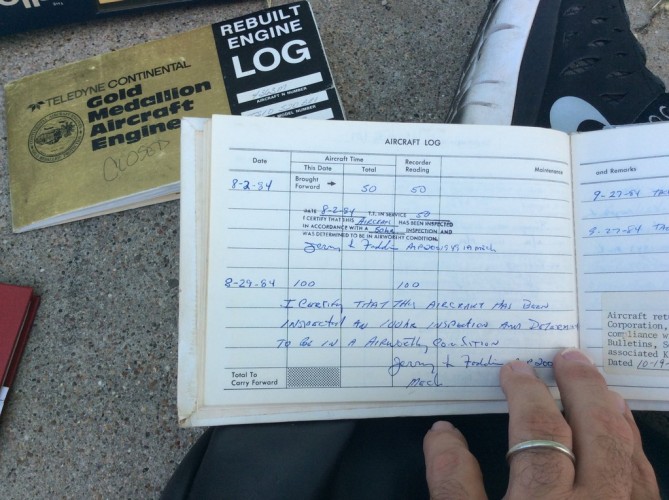 REBUILT
ENGINE
LOG
AIRCRAFT N NUMBER
MODEL NUMBER
TELEDYNE CONTINENTAL
Gold
Medallion
Aircraft
Engine
CLOSED
AIRCRAFT LOG
Date
Aircraft Time
This Date
Total
Recorder
Reading
Maintenance
and Remarks
8-2-84
Brought
Forward
50
50
DATE 8-2-84 T.T. IN SERVICE 50
I CERTIFY THAT THIS AIRCRAFT HAS BEEN INSPECTED
IN ACCORDANCE WITH A 50HR INSPECTION AND
WAS DETERMINED TO BE IN AIRWORTHY CONDITION.
8-29-84 100 100
I CERTIFY THAT THIS AIRCRAFT HAS BEEN
INSPECTED AN 100HR INSPECTION AND
TO BE IN A AIRWORTHY CONDITION
MECH
Total To
Carry Forward
9-27-84
Aircraft
Corporation,
compliance
Bulletins,
associated
Dated 10-19-